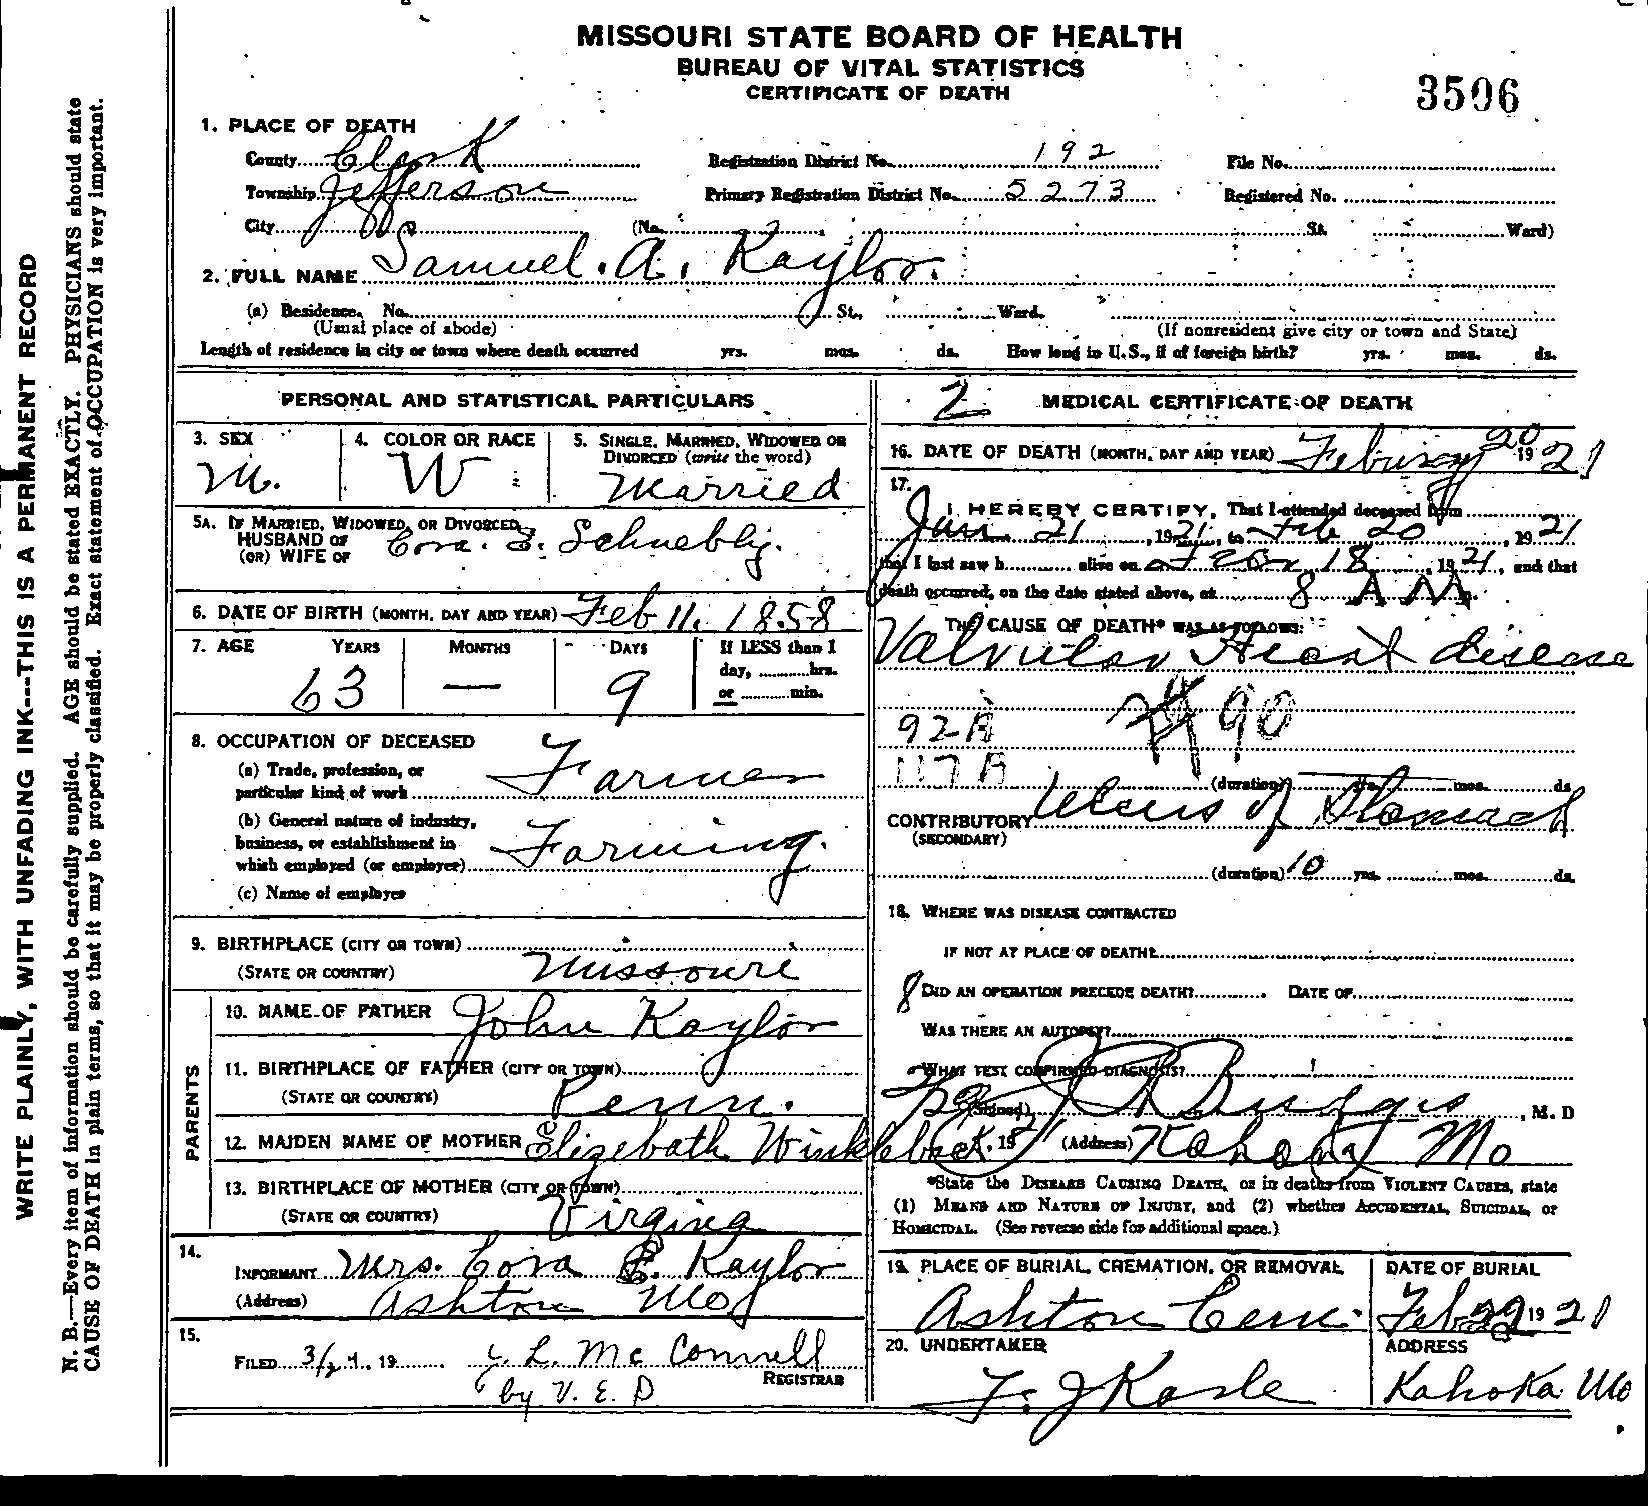 MISSOURI STATE BOARD OF HEALTH
BUREAU OF VITAL STATISTICS
CERTIFICATE OF DEATH
3506
WRITE PLAINLY, WITH UNFADING INK---THIS IS A PERMANENT RECORD
N. B.—Every item of information should be carefully supplied. AGE should be stated EXACTLY. PHYSICIANS should state
CAUSE OF DEATH in plain terms, so that it may be properly classified. Exact statement of OCCUPATION is very important.
1. PLACE OF DEATH
County Clark Registration District No. 192 File No.
Township Jefferson Primary Registration District No. 5273 Registered No.
City (No. St. Ward)
2. FULL NAME Samuel. A. Kaylor.
(a) Residence. No. St., Ward.
(Usual place of abode) (If nonresident give city or town and State)
Length of residence in city or town where death occurred yrs. mos. ds. How long in U.S., if of foreign birth? yrs. mos. ds.
PERSONAL AND STATISTICAL PARTICULARS
3. SEX 4. COLOR OR RACE 5. SINGLE, MARRIED, WIDOWED OR
DIVORCED (write the word)
M. W Married
5A. IF MARRIED, WIDOWED, OR DIVORCED
HUSBAND OF
(OR) WIFE OF Cora. E. Schnebly.
6. DATE OF BIRTH (MONTH, DAY AND YEAR) Feb 11. 1858
7. AGE YEARS MONTHS DAYS If LESS than 1
day, hrs.
or min.
63 — 9
8. OCCUPATION OF DECEASED
(a) Trade, profession, or
particular kind of work Farmer
(b) General nature of industry,
business, or establishment in
which employed (or employer) Farming.
(c) Name of employer
9. BIRTHPLACE (CITY OR TOWN)
(STATE OR COUNTRY) Missouri
PARENTS
10. NAME OF FATHER John Kaylor
11. BIRTHPLACE OF FATHER (CITY OR TOWN)
(STATE OR COUNTRY) Penn.
12. MAIDEN NAME OF MOTHER Elizebath Winkleback.
13. BIRTHPLACE OF MOTHER (CITY OR TOWN)
(STATE OR COUNTRY) Virginia
14.
INFORMANT Mrs. Cora E. Kaylor
(Address) Ashton Mo
15.
FILED 3/24, 19 L. McConnell
REGISTRAR
by V. E. D
2 MEDICAL CERTIFICATE OF DEATH
16. DATE OF DEATH (MONTH, DAY AND YEAR) Feburay 20 1921
17.
I HEREBY CERTIFY, That I attended deceased from
Jan 21, 1921, to Feb 20, 1921
that I last saw h alive on Feb 18, 1921, and that
death occurred, on the date stated above, at 8 AM.
THE CAUSE OF DEATH* WAS AS FOLLOWS:
Valvular Heart disease
92A 90
117A
(duration) yrs. mos. ds.
CONTRIBUTORY Ulcers of Stomach
(SECONDARY)
(duration) 10 yrs. mos. ds.
18. WHERE WAS DISEASE CONTRACTED
IF NOT AT PLACE OF DEATH?
8 DID AN OPERATION PRECEDE DEATH? DATE OF
WAS THERE AN AUTOPSY?
WHAT TEST CONFIRMED DIAGNOSIS?
(Signed) , M. D
, 19 (Address) Kahoka Mo
*State the DISEASE CAUSING DEATH, or in deaths from VIOLENT CAUSES, state
(1) MEANS AND NATURE OF INJURY, and (2) whether ACCIDENTAL, SUICIDAL, or
HOMICIDAL. (See reverse side for additional space.)
19. PLACE OF BURIAL, CREMATION, OR REMOVAL DATE OF BURIAL
Ashton Cem. Feb 22 1921
20. UNDERTAKER ADDRESS
F. J Karle Kahoka Mo